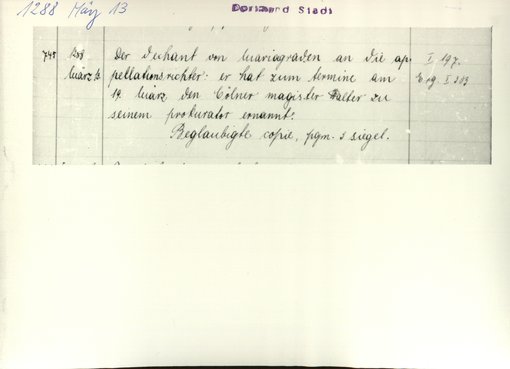 1288 März 13
Dortmund Stadt
745 1288 Der Dechant von Mariagraden an die ap- I 197.
März 13 pellationsrichter: er hat zum termine am Erg. I 313
17. März den Cölner magister Walter zu
seinem prokurator ernannt.
Beglaubigte copie, pgm. 3 siegel.